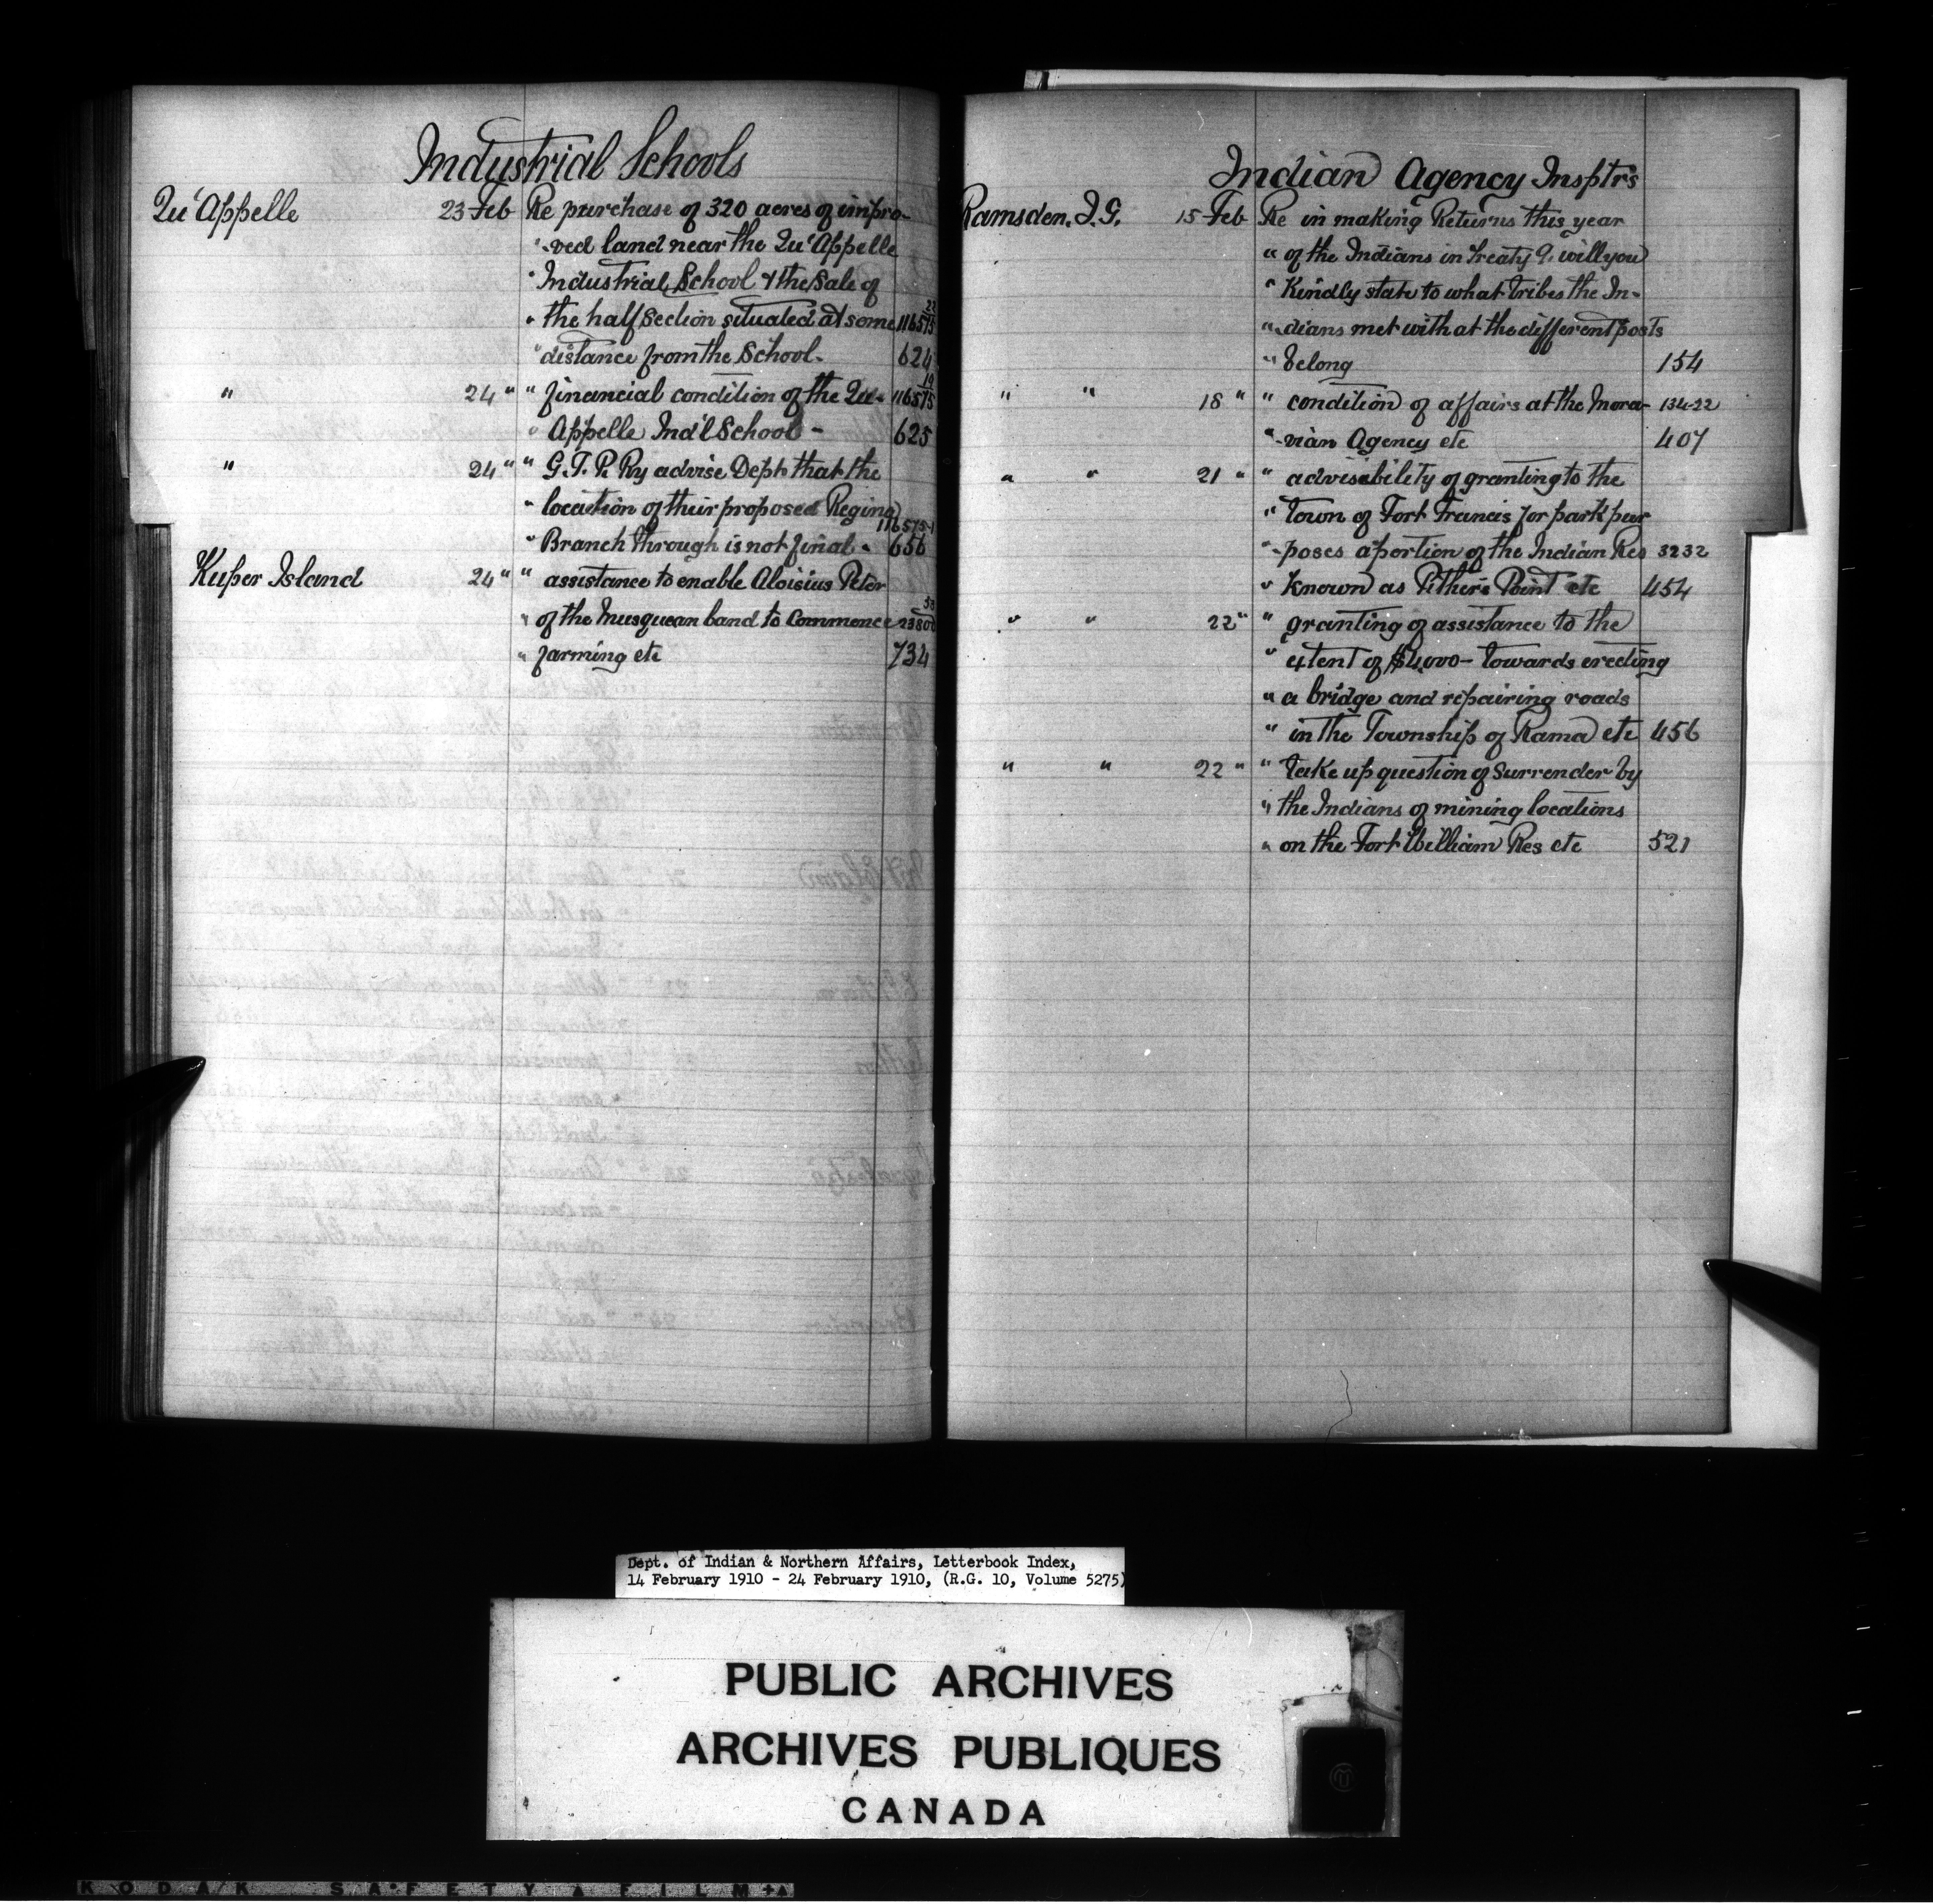 Industrial Schools
Qu'Appelle 23 Feb Re purchase of 320 acres of impro-
"-ved land near the Qu'Appelle
" Industrial School & the sale of
" the half section situated at some 116575 22
" distance from the School- 624
" 24 " " financial condition of the Qu- 116575 19
" Appelle Ind'l School - 625
" 24 " " G.T.P. Ry advise Dept that the
" location of their proposed Regina
" Branch through is not final - 116575-1 656
Kuper Island 24 " " assistance to enable Aloisius Peter
" of the Musqueam band to commence 23800 58
" farming etc 734
Indian Agency Insptrs
Ramsden, J.G. 15 Feb Re in making Returns this year
" of the Indians in Treaty 9. will you
" Kindly state to what tribes the In-
"-dians met with at the different posts
" belong 154
" " 18 " " condition of affairs at the Mora- 134-22
"-vian Agency etc 407
" " 21 " " advisability of granting to the
" Town of Fort Francis for park pur
"-poses a portion of the Indian Res 3232
" known as Pither's Point etc 454
" " 22 " " granting of assistance to the
" extent of $4,000- towards erecting
" a bridge and repairing roads
" in the Township of Rama etc 456
" " 22 " " take up question of surrender by
" the Indians of mining locations
" on the Fort William Res etc 521
Dept. of Indian & Northern Affairs, Letterbook Index,
14 February 1910 - 24 February 1910, (R.G. 10, Volume 5275)
PUBLIC ARCHIVES
ARCHIVES PUBLIQUES
CANADA
KODAK SAFETY FILM